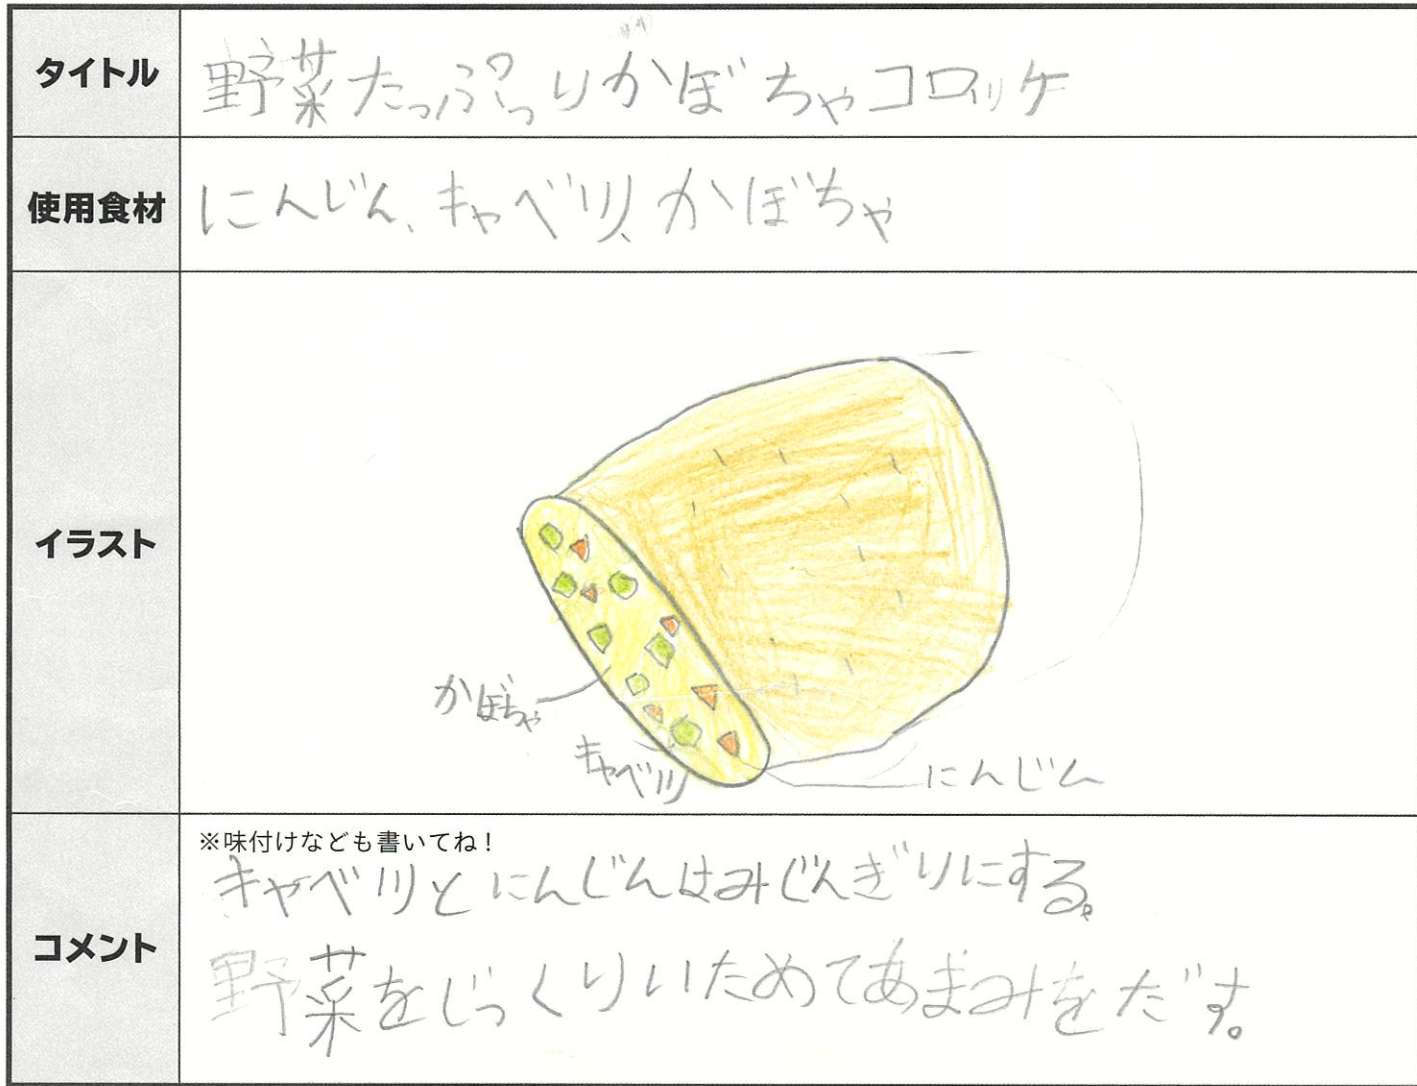 タイトル
野菜たっぷりかぼちゃコロッケ
使用食材
にんじん、キャベツ、かぼちゃ
イラスト
かぼちゃ
キャベツ
にんじん
コメント
※味付けなども書いてね！
キャベツとにんじんはみじんぎりにする。
野菜をじっくりいためてあまみをだす。